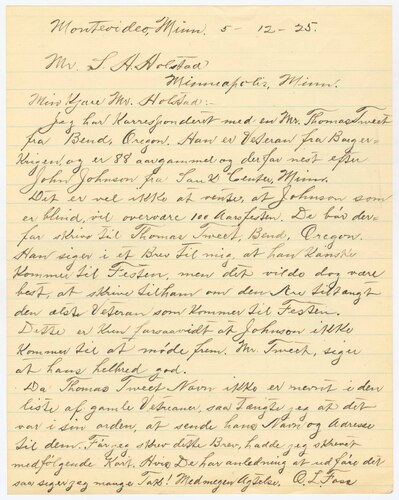 Montevideo, Minn. 5 - 12 - 25.
Mr. S. H. Holstad
Minneapolis, Minn.
Min Kjære Mr. Holstad:-
Jeg har Korresponderet med en Mr. Thomas Tweet
fra Bend, Oregon. Han er Veteran fra Borger-
Krigen og er 88 aar gammel og derfor nest efter
John Johnson fra Sauk Center, Minn.
Det er vel ikke at vente, at Johnson som
er blind, vil overvære 100 Aarsfesten. De bør der-
før skrive til Thomas Tweet, Bend, Oregon.
Han siger i et Brev til mig, at han Kanske
Komme til Festen, men det vilde dog være
best, at skrive til ham om den Ære tiltængt
den ælste Veteran som Kommer til Festen.
Dette er Kun forsaavidt at Johnson ikke
Kommer til at møde frem. Mr. Tweet, siger
at hans helbred god.
Da Thomas Tweet Navn ikke er nevnt i den
liste af gamle Vetraner, saa tængte jeg at det
var i sin orden, at sende hans Navn og Adresse
til dem. Før jeg skrev dette Brev, hadde jeg skrevet
medfølgende Kort. Hvis De har anledning at udføre det
saa siger jeg mange Tak! Med megen Agtelse, O. L. Foss